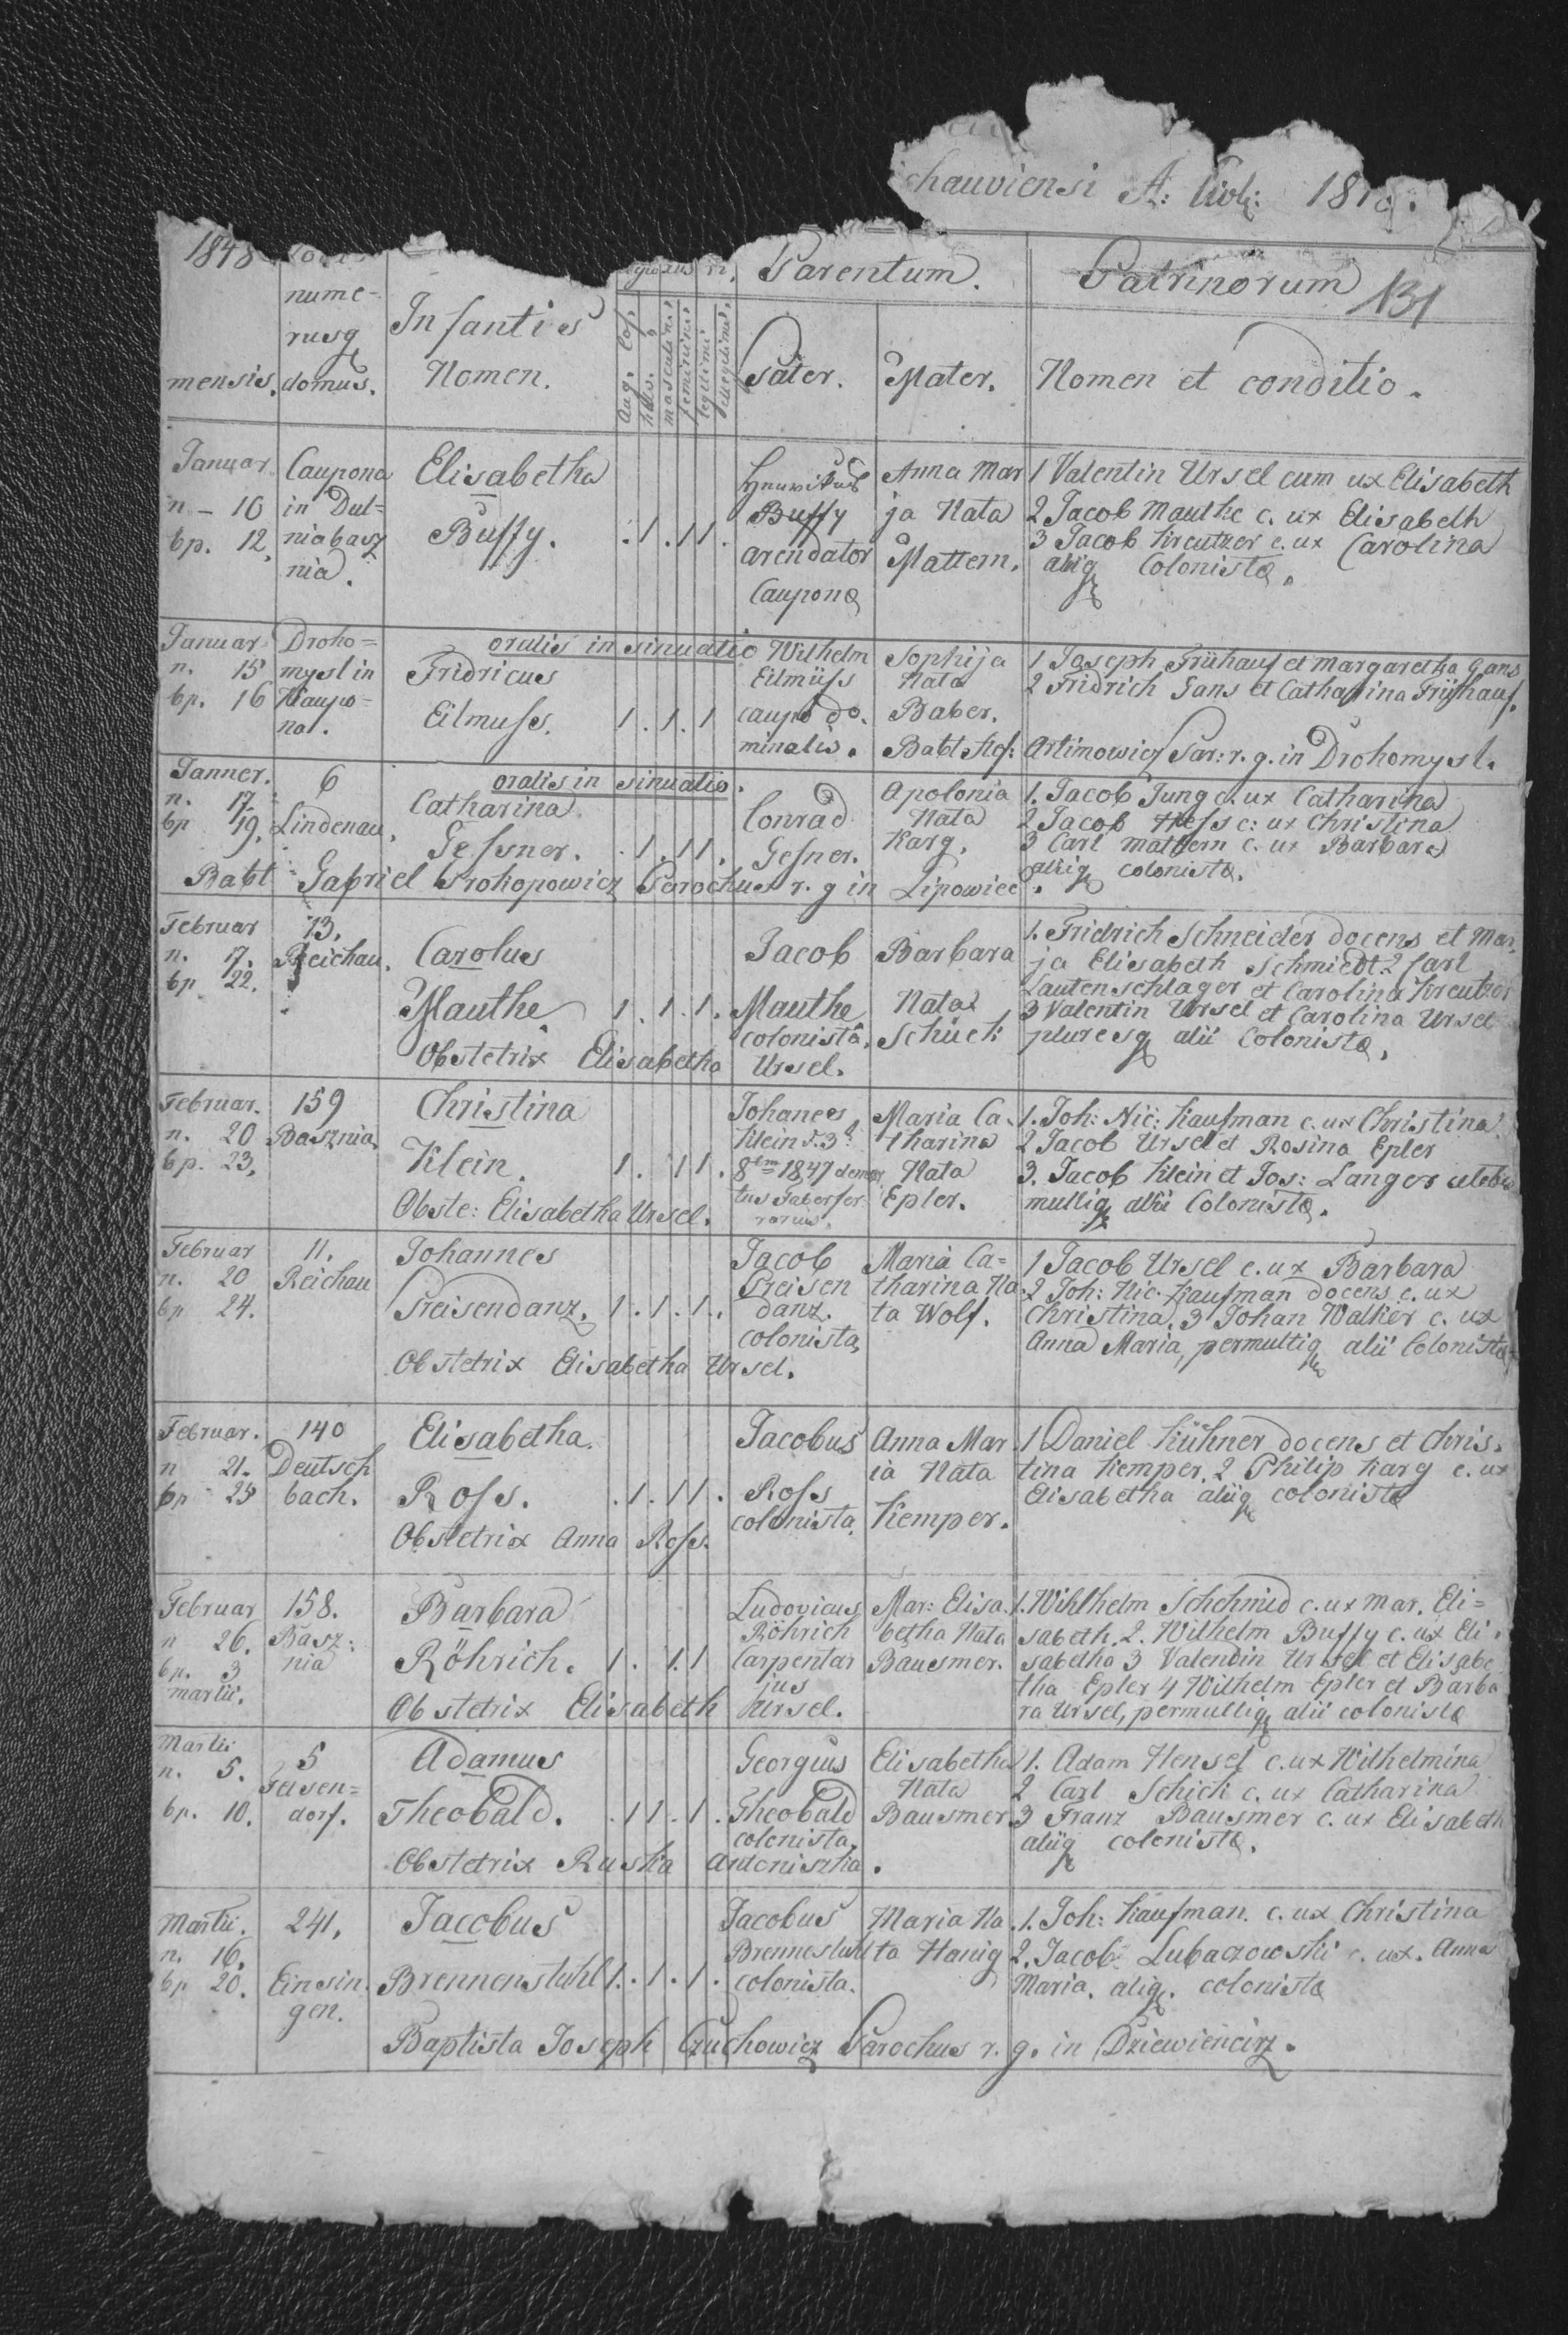 chauviensi A: Civli: 1848.
1848
mensis.
nume-
rusq
domus.
Infanties
Nomen.
Aug. Cof.
Helv.
masculini
feminini
legitimi
illegitimi
Parentum.
Pater.
Mater.
Patrinorum
131
Nomen et conditio.
Januar.
n - 10
bp. 12.
Caupona
in Dut=
niabasz
nia.
Elisabetha
Buffy.
. 1 . 1 1 .
Buffy
arendator
Cauponæ
Anna Mar
ja Nata
Mattern.
1 Valentin Ursel cum ux Elisabeth
2 Jacob Mauthe c. ux Elisabeth
3 Jacob Kreutzer c. ux Carolina
aliiq Colonistæ.
Januar
n. 15
bp. 16
Droho=
myst in
Kaupo=
na.
oralis in sinuatio
Fridricus
Eilmuss.
1 . 1 . 1
Wilhelm
Eilmüss
caupo do.
minalis.
Sophija
Nata
Baber.
1 Joseph Frühauf et Margaretha Gans
2 Fridrich Gans et Catharina Frühauf.
Babt Stef: Artimowicz Par: r. g. in Drohomysl.
Janner.
n. 17.
bp 19.
6
Lindenau.
oralis in sinuatio.
Catharina
Gessner.
. 1 . 1 1 .
Conrad
Gesner.
Apolonia
Nata
Karg.
1. Jacob Jung c. ux Catharina
2 Jacob Hess c: ux Christina
3 Carl Mattern c. ux Barbara
aliiq colonistæ.
Babt Gabriel Prokopowicz Parochus r. g in Lipowiec.
Februar
n. 17.
bp 22.
13.
Reichau.
Carolus
Mauthe
1 . 1 . 1 .
Obstetrix Elisabetha Ursel.
Jacob
Mauthe
colonista.
Barbara
Nata
Schück
1. Fridrich Schneider docens et Mar.
ja Elisabeth Schmiedt. 2 Carl
Lautenschlager et Carolina Kreutzer
3 Valentin Ursel et Carolina Ursel
pluresq alii Colonistæ.
Februar.
n. 20
bp. 23.
159
Basznia
Christina
Klein.
1 . 1 1 .
Obste: Elisabetha Ursel.
Johanees
Klein d. 3t
8bris 1847
Maria Ca.
tharina
Nata
Epler.
1. Joh: Nic: Kaufman c. ux Christina
2 Jacob Ursel et Rosina Epler
3. Jacob Klein et Jos: Langer
multiq alii Colonistæ.
Februar
n. 20
bp 24.
11.
Reichau
Johannes
Preisendanz.
1 . 1 . 1 .
Obstetrix Elisabetha Ursel.
Jacob
Preisen
danz.
colonista.
Maria Ca=
tharina Na
ta Wolf.
1 Jacob Ursel c. ux Barbara
2 Joh: Nic. Kaufman docens c. ux
Christina. 3 Johan Walker c. ux
Anna Maria, permultiq alii Colonistæ
Februar.
n 21.
bp 25
140
Deutsch
bach.
Elisabetha.
Ross.
. 1 . 1 1 .
Obstetrix Anna Ross.
Jacobus
Ross
colonista.
Anna Mar.
ia Nata
Kemper.
1 Daniel Kühner docens et Chris.
tina Kemper. 2 Philip Karg c. ux
Elisabetha aliiq colonistæ
Februar
n 26.
bp. 3
martii.
158.
Basz:
nia
Barbara
Röhrich.
1 . 1 . 1
Obstetrix Elisabeth Ursel.
Ludovicus
Röhrich
Carpentar
jus
Mar: Elisa.
betha Nata
Bausmer.
1. Wihlhelm Schchmid c. ux Mar. Eli=
sabeth. 2. Wilhelm Buffy c. ux Eli.
sabetha 3 Valendin Ursel et Elisabe
tha Epler 4 Wilhelm Epler et Barba
ra Ursel, permultiq alii colonistæ
Martii
n. 5.
bp. 10.
5
Felsen=
dorf.
Adamus
Theobald.
. 1 1 . 1 .
Obstetrix Ruska Antoniszka.
Georgius
Theobald
colonista.
Elisabetha
Nata
Bausmer.
1. Adam Hensel c. ux Wilhelmina
2 Carl Schick c. ux Catharina
3 Franz Bausmer c. ux Elisabeth
aliiq colonistæ.
Martii.
n. 16.
bp 20.
241.
Einsin.
gen.
Jacobus
Brennenstuhl
1 . 1 . 1 .
Jacobus
Brennestuhl
colonista.
Maria Na
ta Hanig
1. Joh: Kaufman. c. ux Christina
2. Jacob Lubaczowski c. ux. Anna
Maria. aliq. colonistæ
Baptista Joseph Czuchowicz Parochus r. g. in Dziewiencirz.